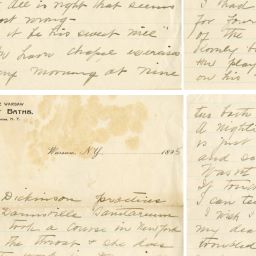 All is right that seems
wrong-
it be his sweet will"
chapel exercises
my morning at nine
I had
for four
of the
money
his play
on his
THE WARSAW
BATHS.
N. Y.
Warsaw, N.Y. 1895
Dickinson practices
Dansville Sanitarium
took a course in New York
the throat & she does
this bath
A night
is just
and so
Was it
If
I can te
I wish I
my dear
troubled